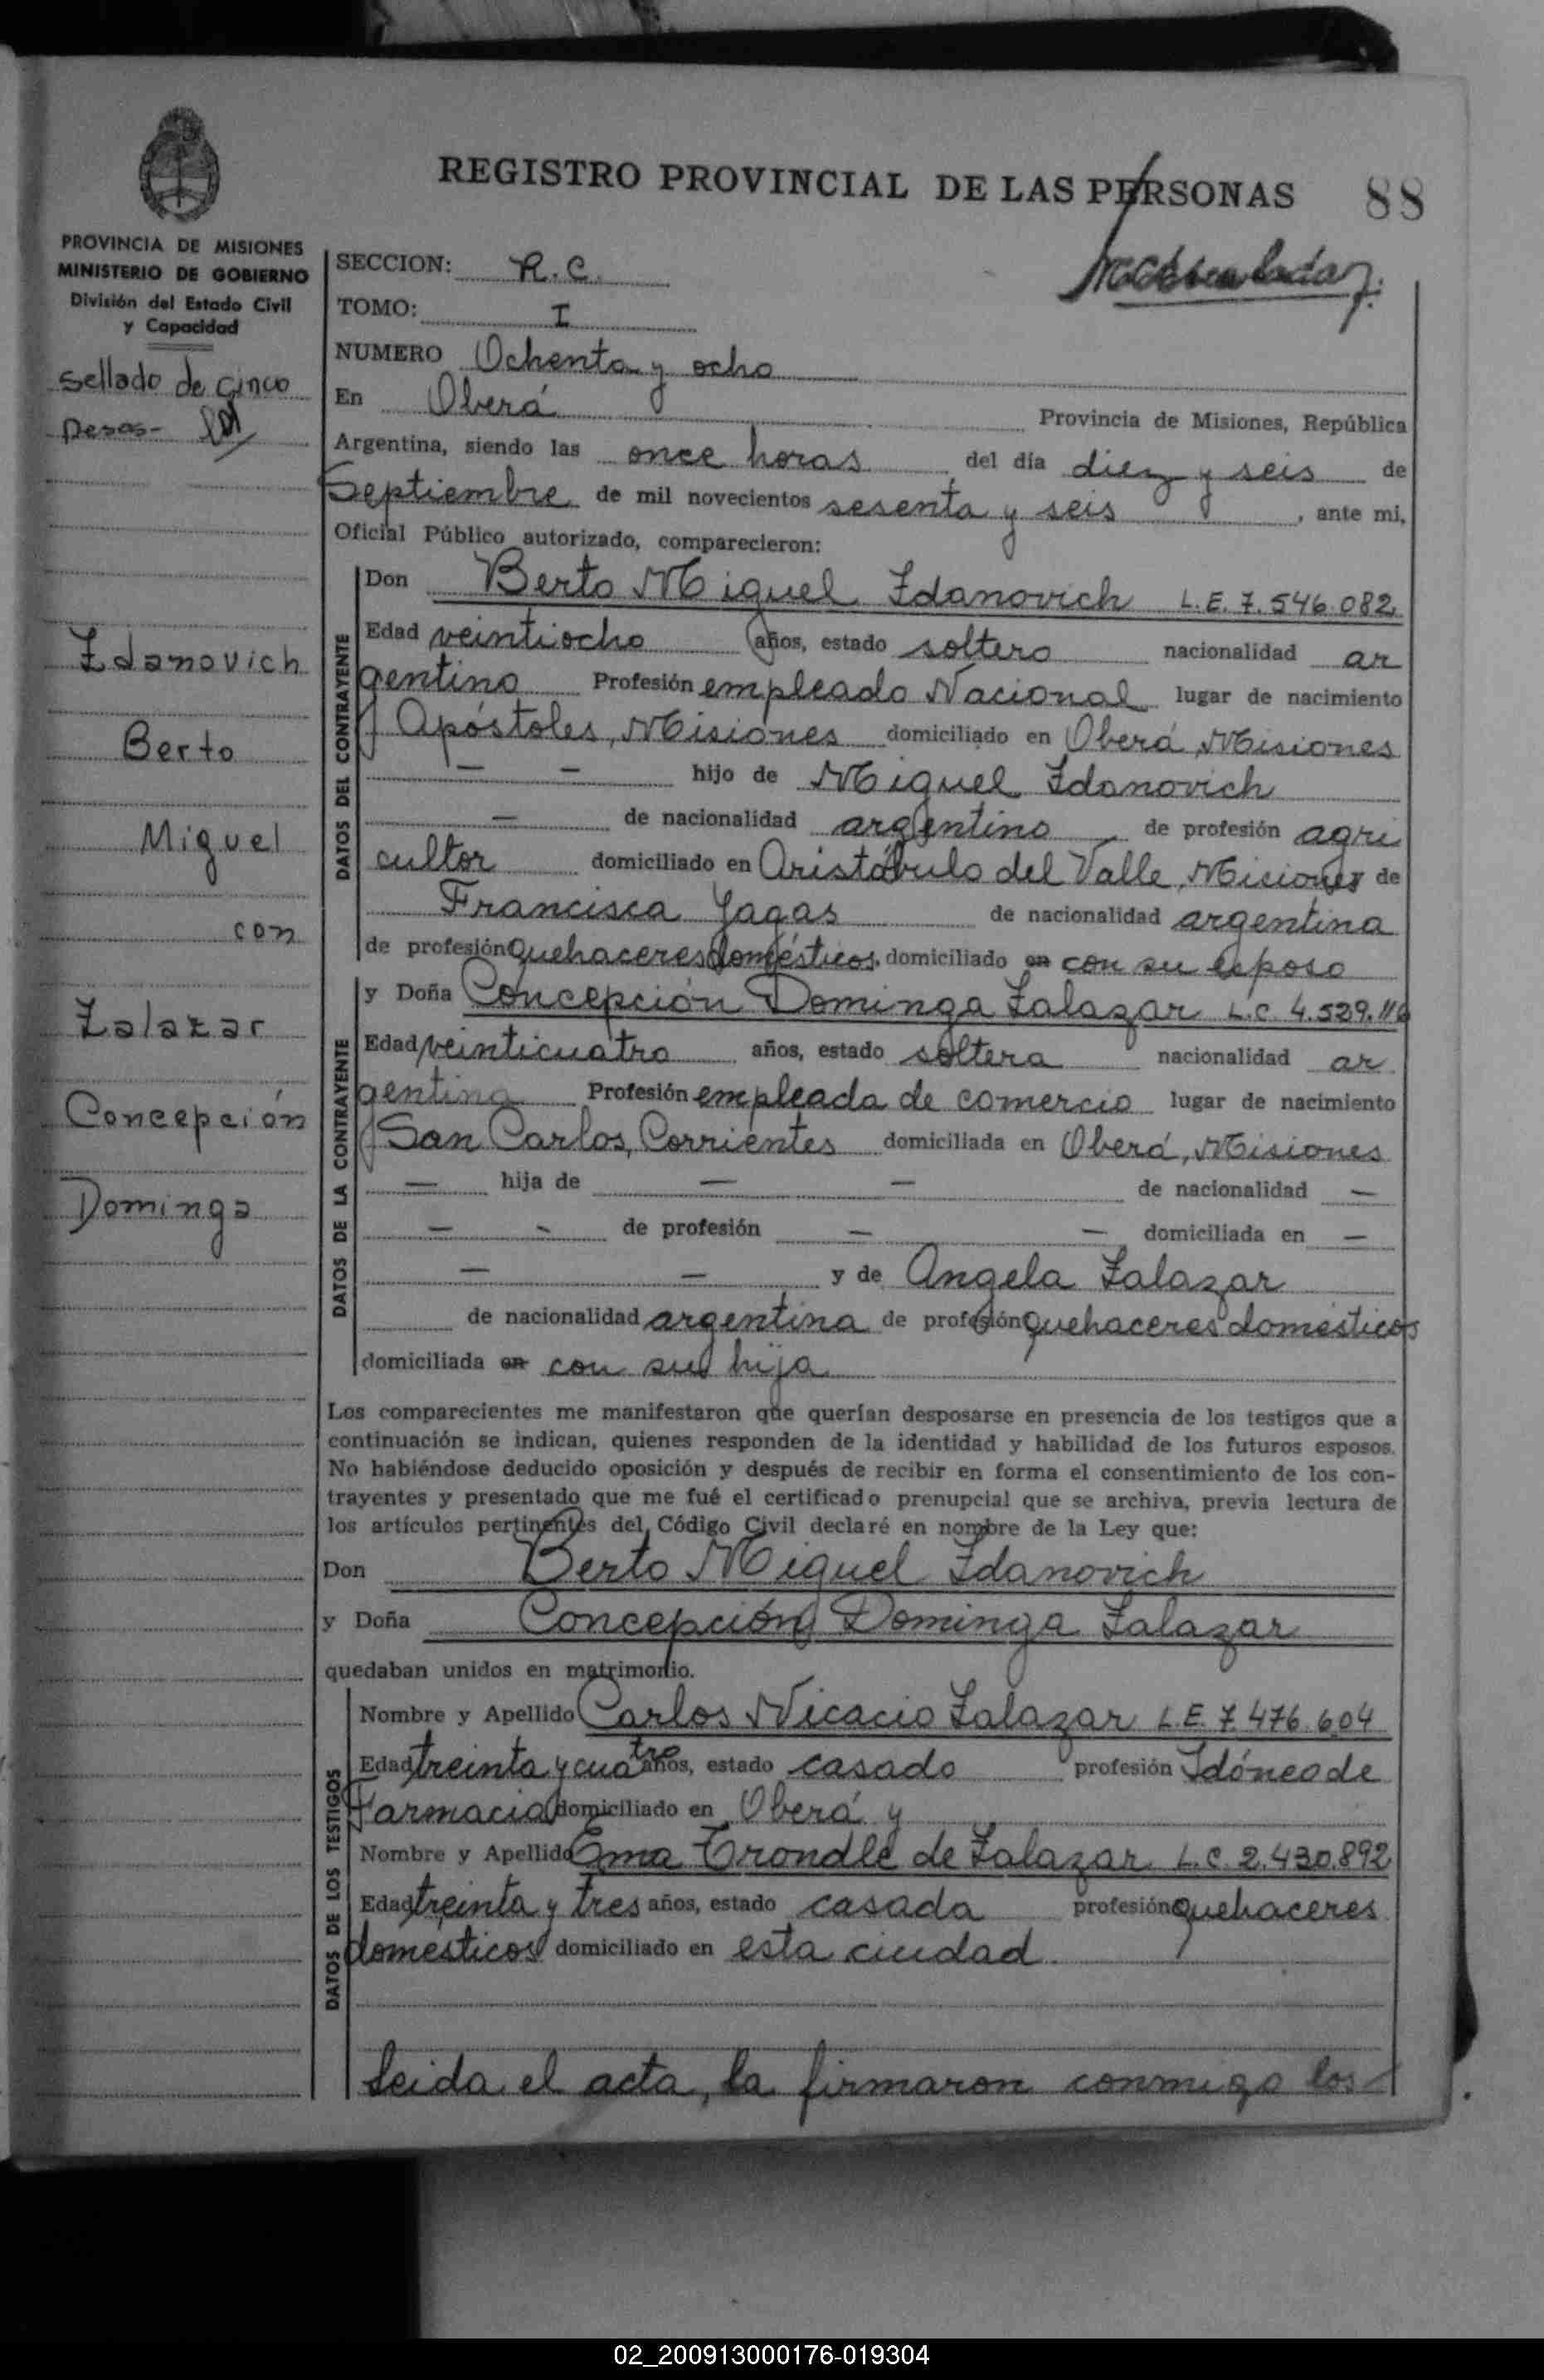 REGISTRO PROVINCIAL DE LAS PERSONAS 88
PROVINCIA DE MISIONES
MINISTERIO DE GOBIERNO
División del Estado Civil
y Capacidad
Sellado de cinco
pesos-
Zdanovich
Berto
Miguel
con
Zalazar
Concepción
Dominga
SECCION: R.C.
TOMO: I
NUMERO Ochenta y ocho
En Oberá Provincia de Misiones, República
Argentina, siendo las once horas del día diez y seis de
Septiembre de mil novecientos sesenta y seis, ante mi,
Oficial Público autorizado, comparecieron:
DATOS DEL CONTRAYENTE
Don Berto Miguel Zdanovich L.E. 7.546.082
Edad veintiocho años, estado soltero nacionalidad ar
gentino Profesión empleado Nacional lugar de nacimiento
Apóstoles, Misiones domiciliado en Oberá, Misiones
— — hijo de Miguel Zdanovich
— de nacionalidad argentino de profesión agri
cultor domiciliado en Aristóbulo del Valle, Misiones y de
Francisca Yagas de nacionalidad argentina
de profesión quehaceres domésticos, domiciliado en con su esposo
DATOS DE LA CONTRAYENTE
y Doña Concepción Dominga Zalazar L.C. 4.529.116
Edad veinticuatro años, estado soltera nacionalidad ar
gentina Profesión empleada de comercio lugar de nacimiento
San Carlos, Corrientes domiciliada en Oberá, Misiones
— hija de — — de nacionalidad —
— - de profesión — — domiciliada en —
— — y de Angela Zalazar
de nacionalidad argentina de profesión quehaceres domésticos
domiciliada en con su hija
Los comparecientes me manifestaron que querían desposarse en presencia de los testigos que a
continuación se indican, quienes responden de la identidad y habilidad de los futuros esposos.
No habiéndose deducido oposición y después de recibir en forma el consentimiento de los con-
trayentes y presentado que me fué el certificado prenupcial que se archiva, previa lectura de
los artículos pertinentes del Código Civil declaré en nombre de la Ley que:
Don Berto Miguel Zdanovich
y Doña Concepción Dominga Zalazar
quedaban unidos en matrimonio.
DATOS DE LOS TESTIGOS
Nombre y Apellido Carlos Nicacio Zalazar L.E. 7.476.604
Edad treinta y cuatro años, estado casado profesión Idóneo de
Farmacia domiciliado en Oberá y
Nombre y Apellido Ema Trondle de Zalazar L.C. 2.430.892
Edad treinta y tres años, estado casada profesión quehaceres
domesticos domiciliado en esta ciudad.
Leida el acta, la firmaron conmigo los
02_200913000176-019304